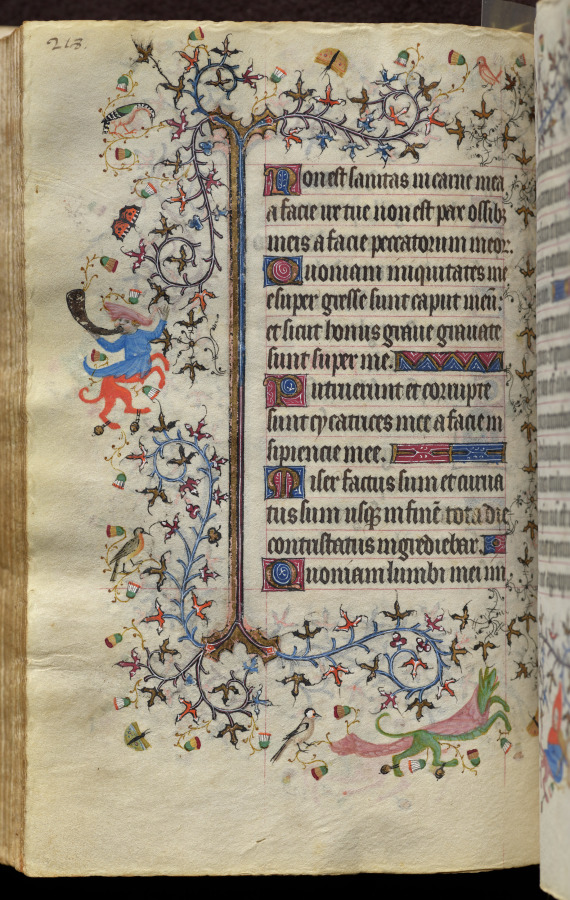 213.
Non est sanitas in carne mea
a facie ire tue non est pax ossib;
meis a facie peccatorum meor:
Quoniam iniquitates me
e super gresse sunt caput meū:
et sicut honus graue grauate
sunt super me.
Putruerunt et corrupte
sunt cycatrices mee a facie in
sipiencie mee.
Miser factus sum et curua
tus sum usq; in finē tota die
contristatus ingrediebar.
Quoniam lumbi mei im